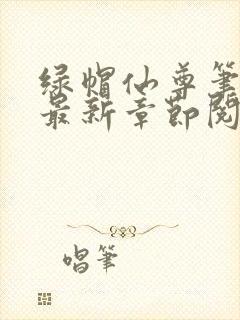 绿帽仙尊笔
最新章节阅
唱笔